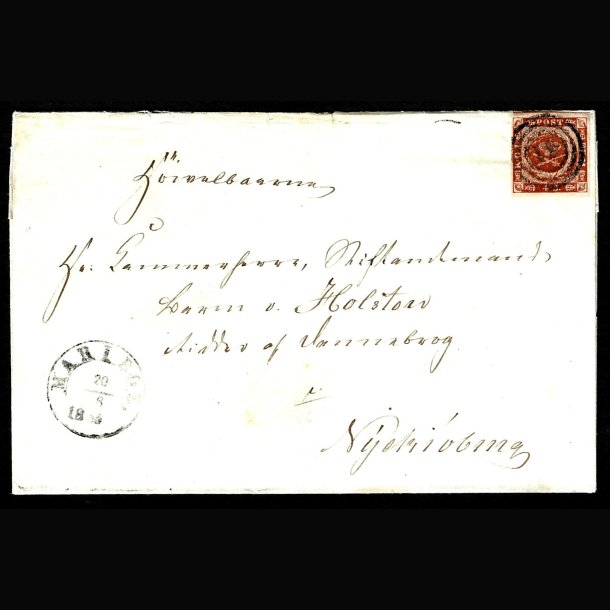 POST
Höivelbaarne
Hr. Kammerherre, Stiftamtmand,
Baron v. Holsten
Ridder af Dannebrog
Nyekiöbing
MARIBO
20
6
18